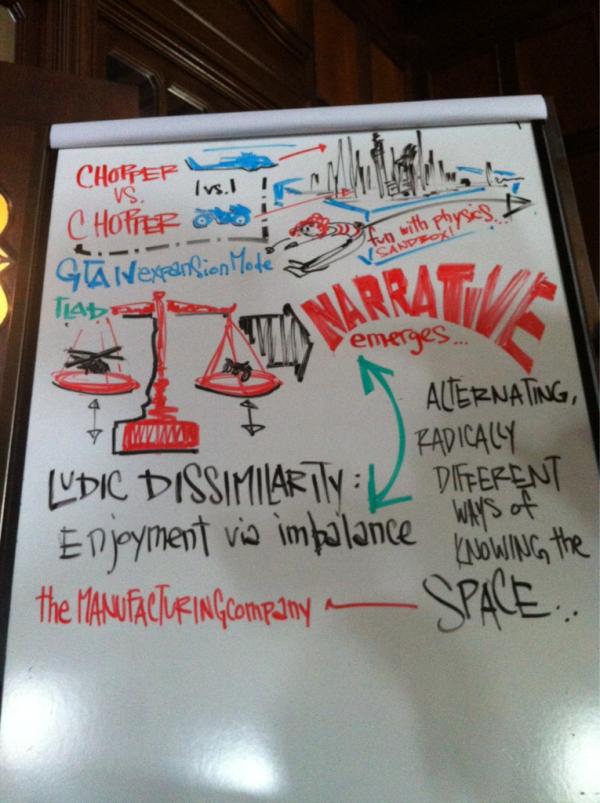 CHOPPER
VS.
CHOPPER
1 vs. 1
fun with physics...
SANDBOX!
GTA IV expansion Mode
TLAD
NARRATIVE
emerges...
ALTERNATING,
RADICALLY
DIFFERENT
WAYS of
KNOWING the
SPACE...
LUDIC DISSIMILARITY:
Enjoyment via imbalance
the MANUFACTURING company